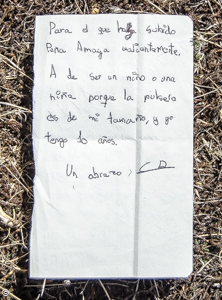 Para el que haya subido
Peña Amaya valientemente.
A de ser un niño o una
niña porque la pulsera
es de mi tamaño, y yo
tengo 10 años.
Un abrazo,